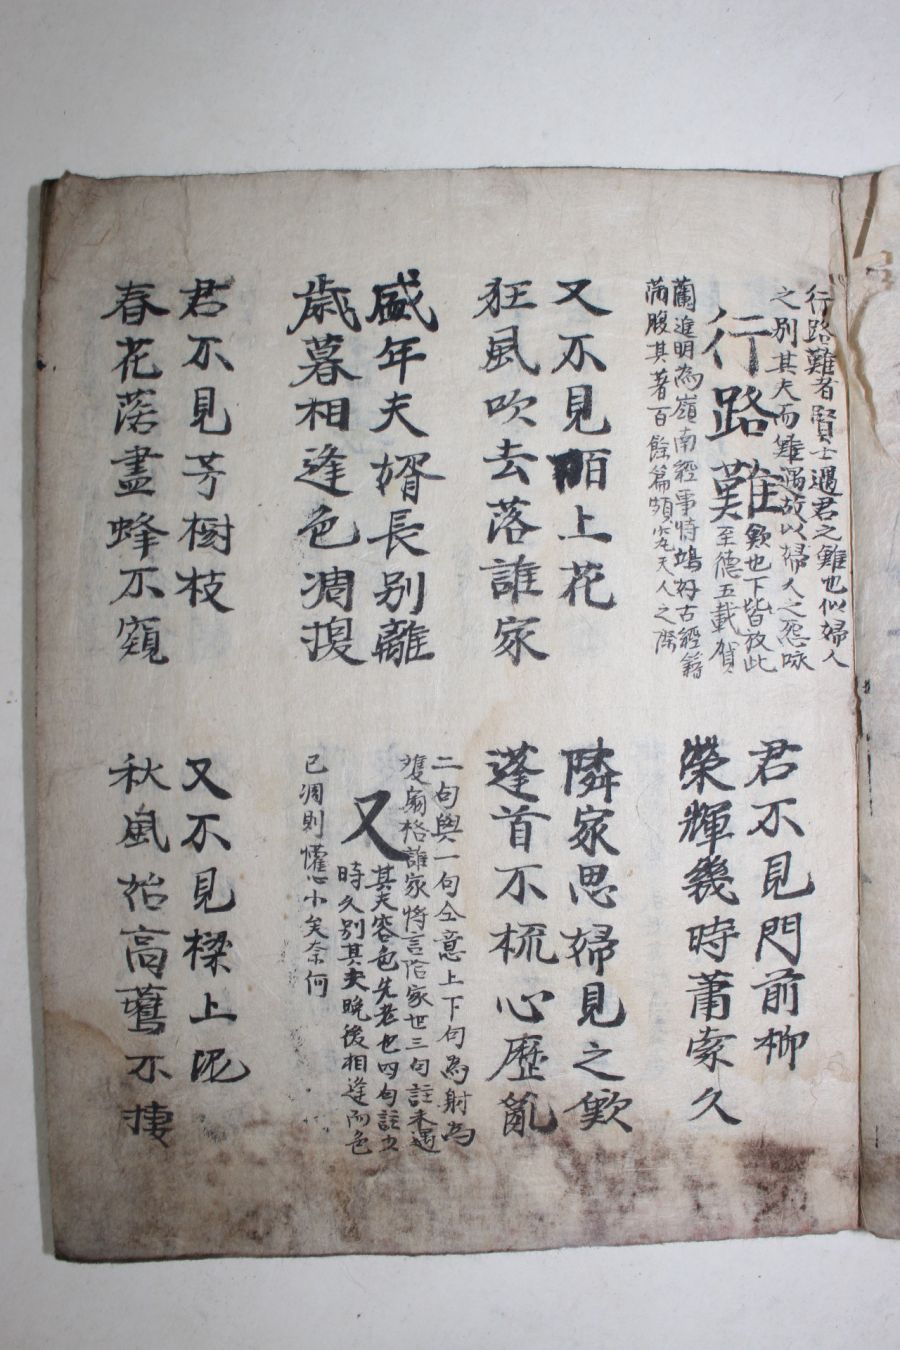 行路難者賢士遇君之難也似婦人
之別其夫而難遇故以婦人之怨咏
行路難
歎也下皆放此
至德五載賀
蘭進明為嶺南經事時鴻好古經籍
滿腹其著百餘篇頗究天人之際
君不見門前柳
榮輝幾時蕭索久
又不見陌上花
狂風吹去落誰家
隣家思婦見之歎
蓬首不梳心歷亂
盛年夫婿長別離
歲暮相逢色凋換
二句與一句仝意上下句為射為
格誰家將言佗家也三句註未遇
又
其夫容色先老也四句註少
時久別其夫晚後相逢而色
已凋則懽心小矣奈何
君不見芳樹枝
春花落盡蜂不窺
又不見樑上泥
秋風始高鷰不棲